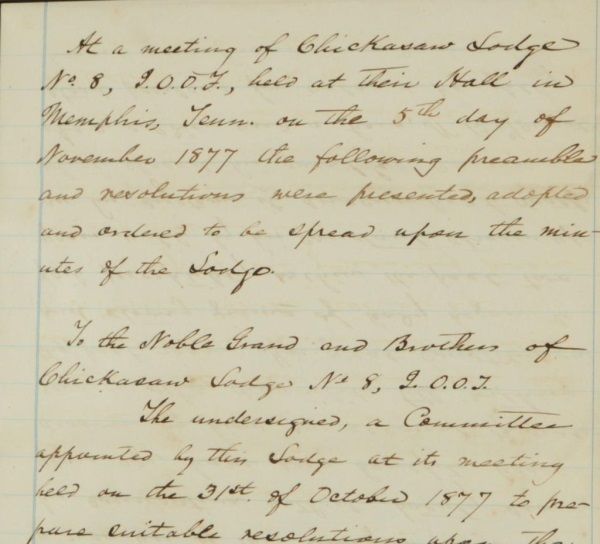 At a meeting of Chickasaw Lodge
No. 8, I.O.O.F., held at their Hall in
Memphis, Tenn. on the 5th day of
November 1877 the following preamble
and resolutions were presented, adopted
and ordered to be spread upon the min-
utes of the Lodge.
To the Noble Grand and Brothers of
Chickasaw Lodge No 8, I.O.O.F.
The undersigned, a Committee
appointed by this Lodge at its meeting
held on the 31st. of October 1877 to pre-
pare suitable resolutions upon the